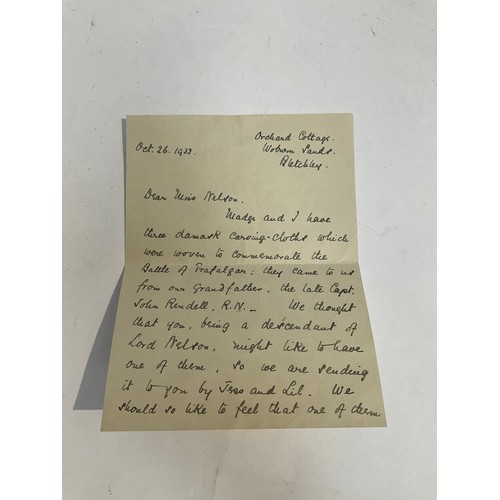 Orchard Cottage.
Oct. 26. 1933. Woburn Sands.
Bletchley.
Dear Miss Nelson.
Madge and I have
three damask carving-cloths which
were woven to commemorate the
Battle of Trafalgar; they came to us
from our Grandfather, the late Capt.
John Rendell, R.N. — We thought
that you, being a descendant of
Lord Nelson, might like to have
one of them, so we are sending
it to you by Jess and Lil. We
should so like to feel that one of them